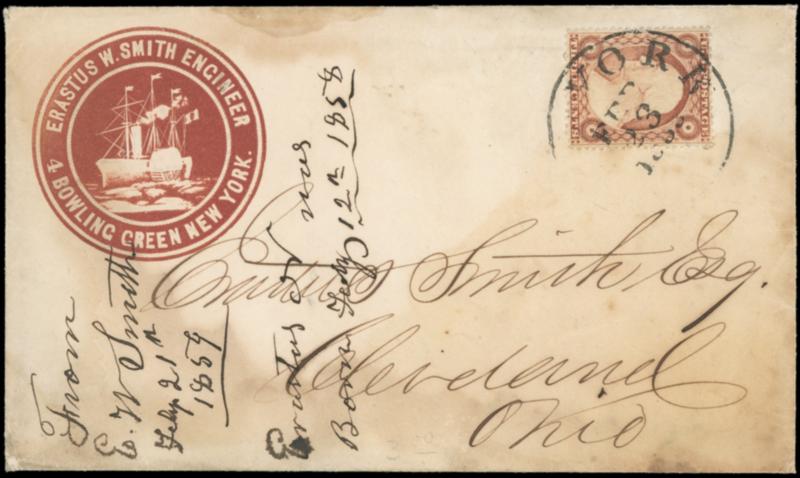 ERASTUS W. SMITH ENGINEER
4 BOWLING GREEN NEW YORK.
YORK
FEB
23
Erastus Smith Esq.
Cleveland
Ohio
From
E. W Smith
Feby 21st
1859
Erastus W was
Born Feby 12th 1858